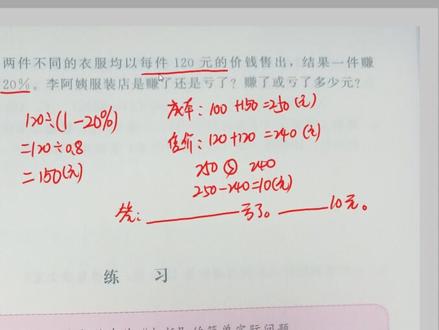 两件不同的衣服均以每件 120 元的价钱售出，结果一件赚
20%。李阿姨服装店是赚了还是亏了？赚了或亏了多少元？
120÷(1-20%)
=120÷0.8
=150(元)
成本：100+150=250(元)
售价：120+120=240(元)
250 > 240
250-240=10(元)
答：亏了。10元。
练 习